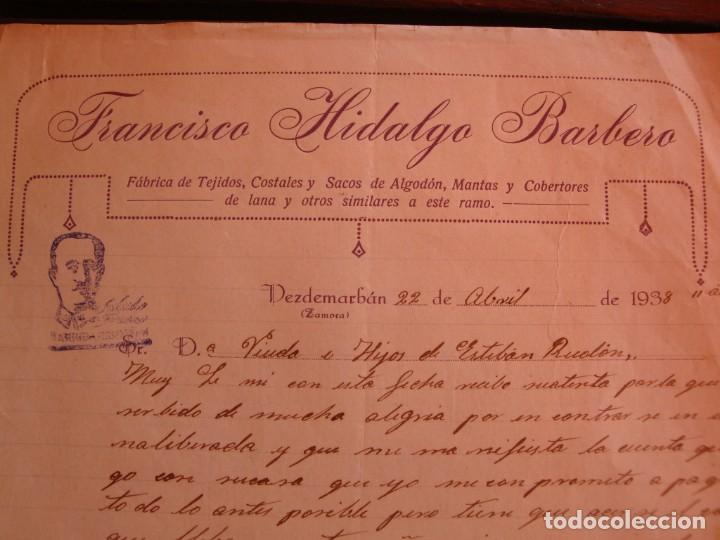 Francisco Hidalgo Barbero
Fábrica de Tejidos, Costales y Sacos de Algodón, Mantas y Cobertores
de lana y otros similares a este ramo.
Vezdemarbán 22 de Abril de 1938 "a
(Zamora)
Sr. D.ª Viuda e Hijos de Estéban
Muy Sr mio con esta fecha recibo su atenta por la que
serbido de mucha alegria por en contrar se en
na liberada y que me ma nifiesta la cuenta que
go con su casa que yo me con prometo a pag
to do lo antes posible pero tiene que
todocoleccion.net